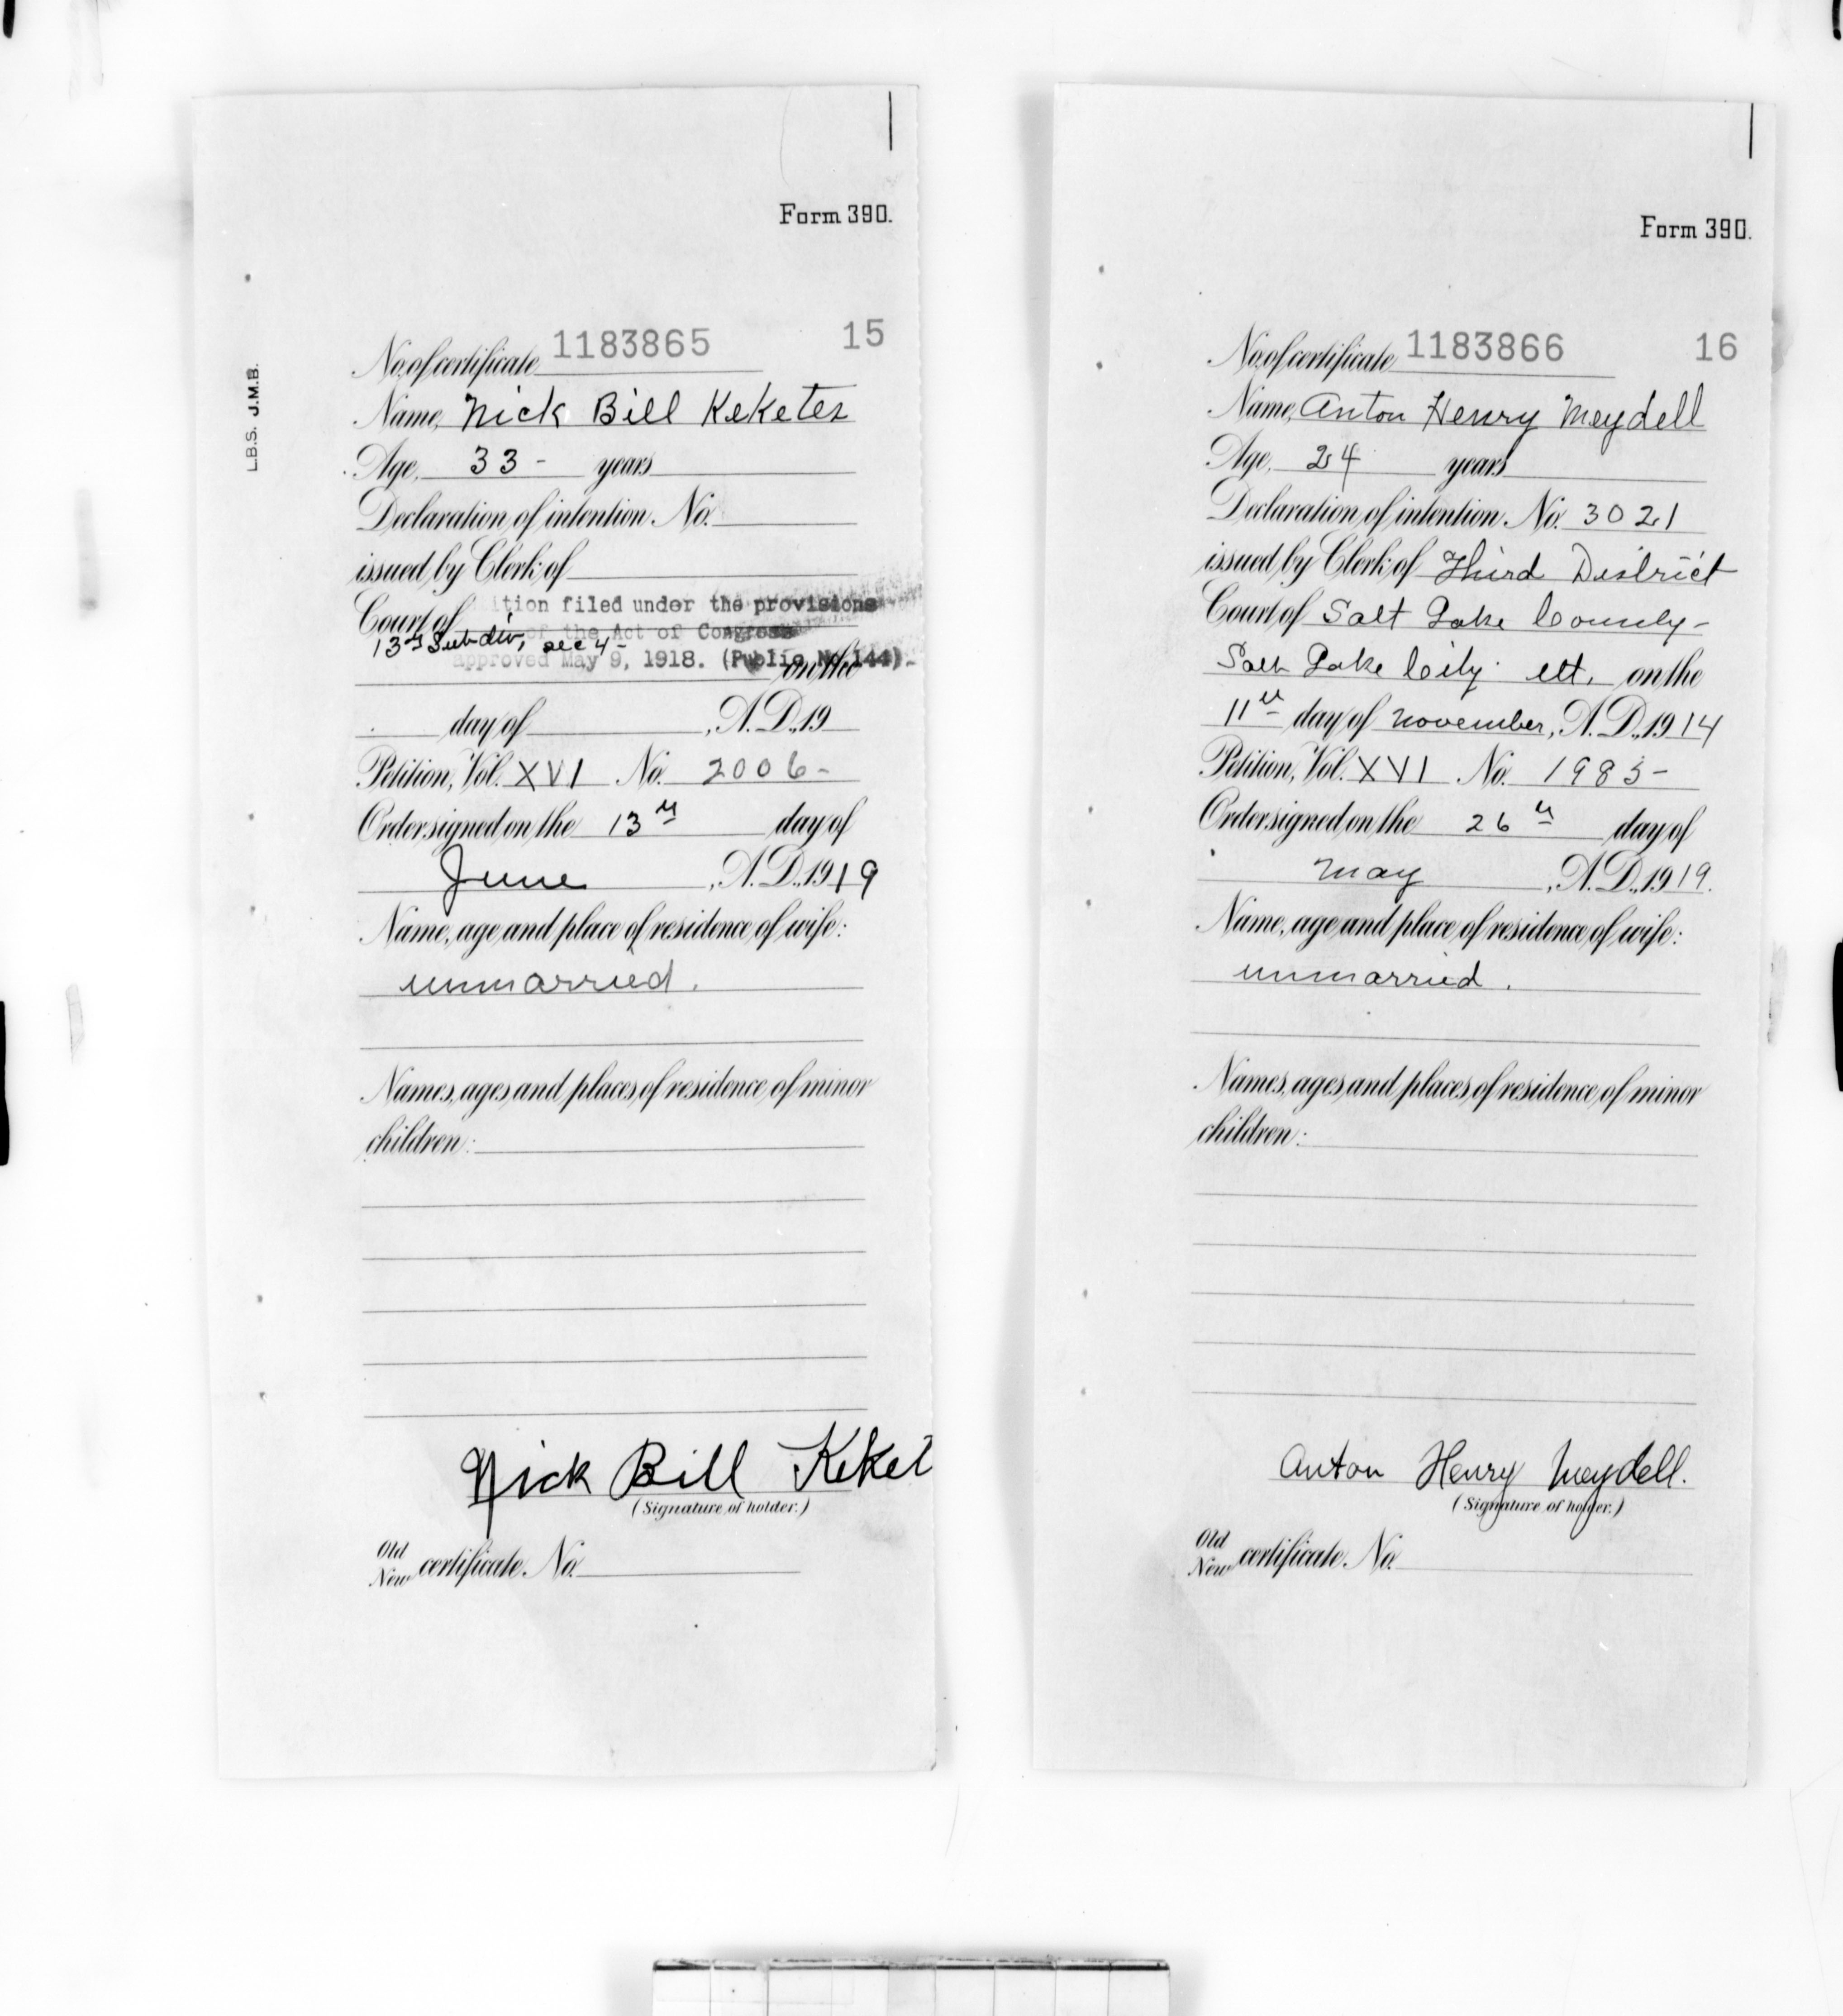 Form 390.
L.B.S. J.M.B.
No. of certificate 1183865 15
Name, Nick Bill Keketes
Age, 33 - years
Declaration of intention No.
issued by Clerk of
Court of ition filed under the provisions
of the Act of Congress
13th Subdiv, sec 4 -
approved May 9, 1918. (Public No. 144).
on the
day of , A.D. 19
Petition, Vol. XVI No. 2006 -
Order signed on the 13th day of
June , A.D. 1919
Name, age and place of residence of wife:
unmarried.
Names, ages and places of residence of minor
children:
Nick Bill Keket
(Signature of holder.)
Old
New certificate No.
Form 390.
No. of certificate 1183866 16
Name, Anton Henry Meydell
Age, 24 years
Declaration of intention No. 3021
issued by Clerk of Third District
Court of Salt Lake County -
Salt Lake City Ut. on the
11th day of November, A.D. 1914
Petition, Vol. XVI No. 1985 -
Order signed on the 26th day of
May , A.D. 1919.
Name, age and place of residence of wife:
unmarried.
Names, ages and places of residence of minor
children:
Anton Henry Meydell.
(Signature of holder.)
Old
New certificate No.